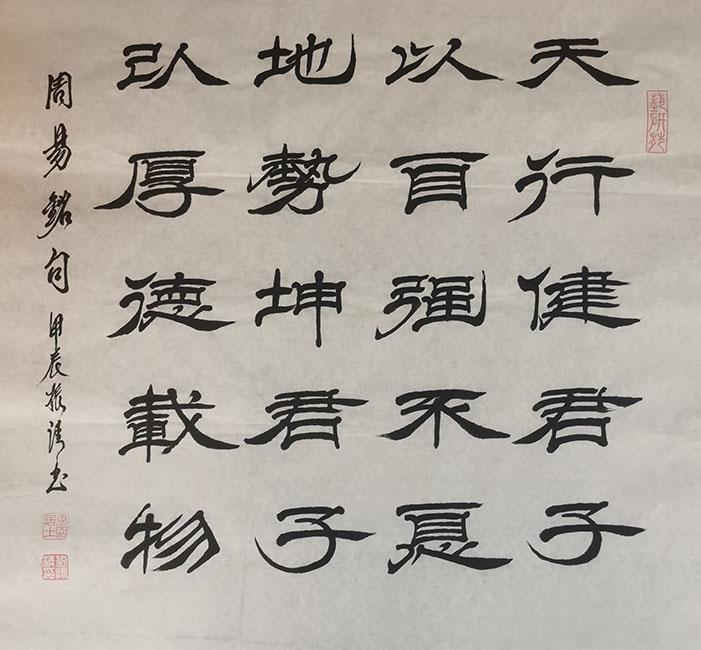 天行健君子
以自强不息
地勢坤君子
以厚德載物
周易銘句 甲辰振清书